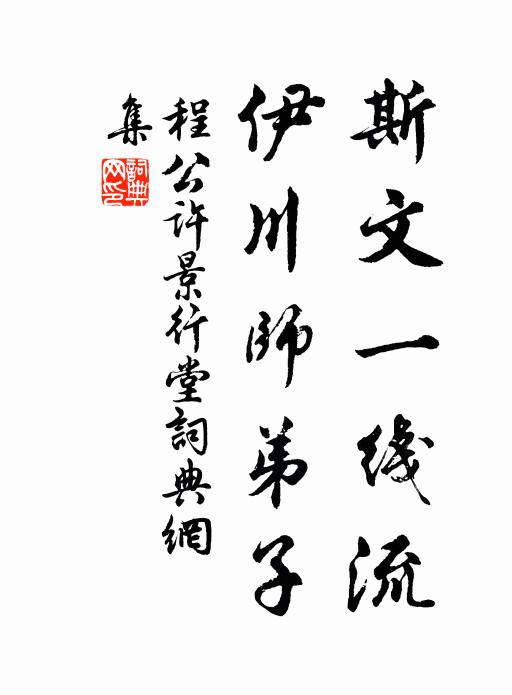 斯文一线流
伊川師弟子
程公許景行堂詞典網
集
詞典網印